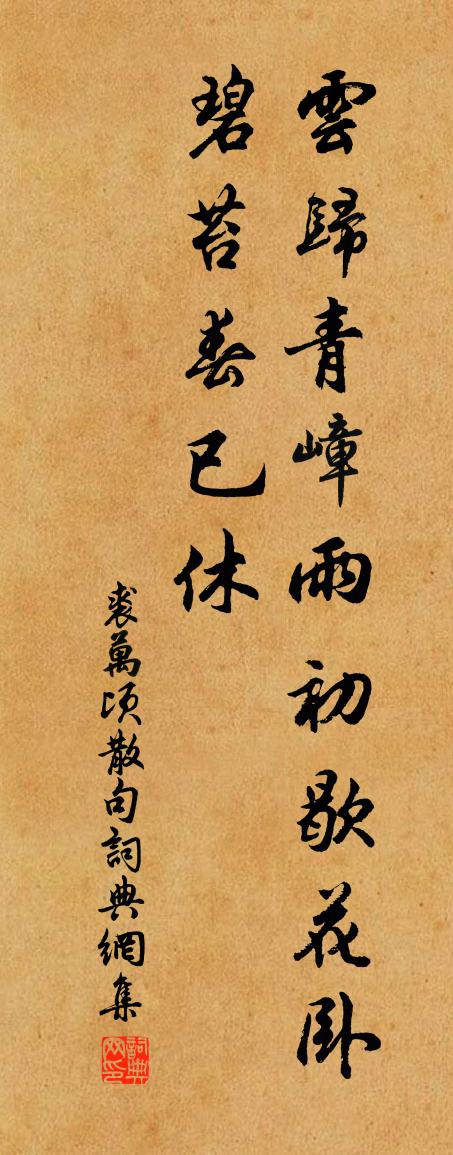 雲歸青嶂雨初歇花臥
碧苔春已休
裘萬頃散句詞典網集
詞典网印